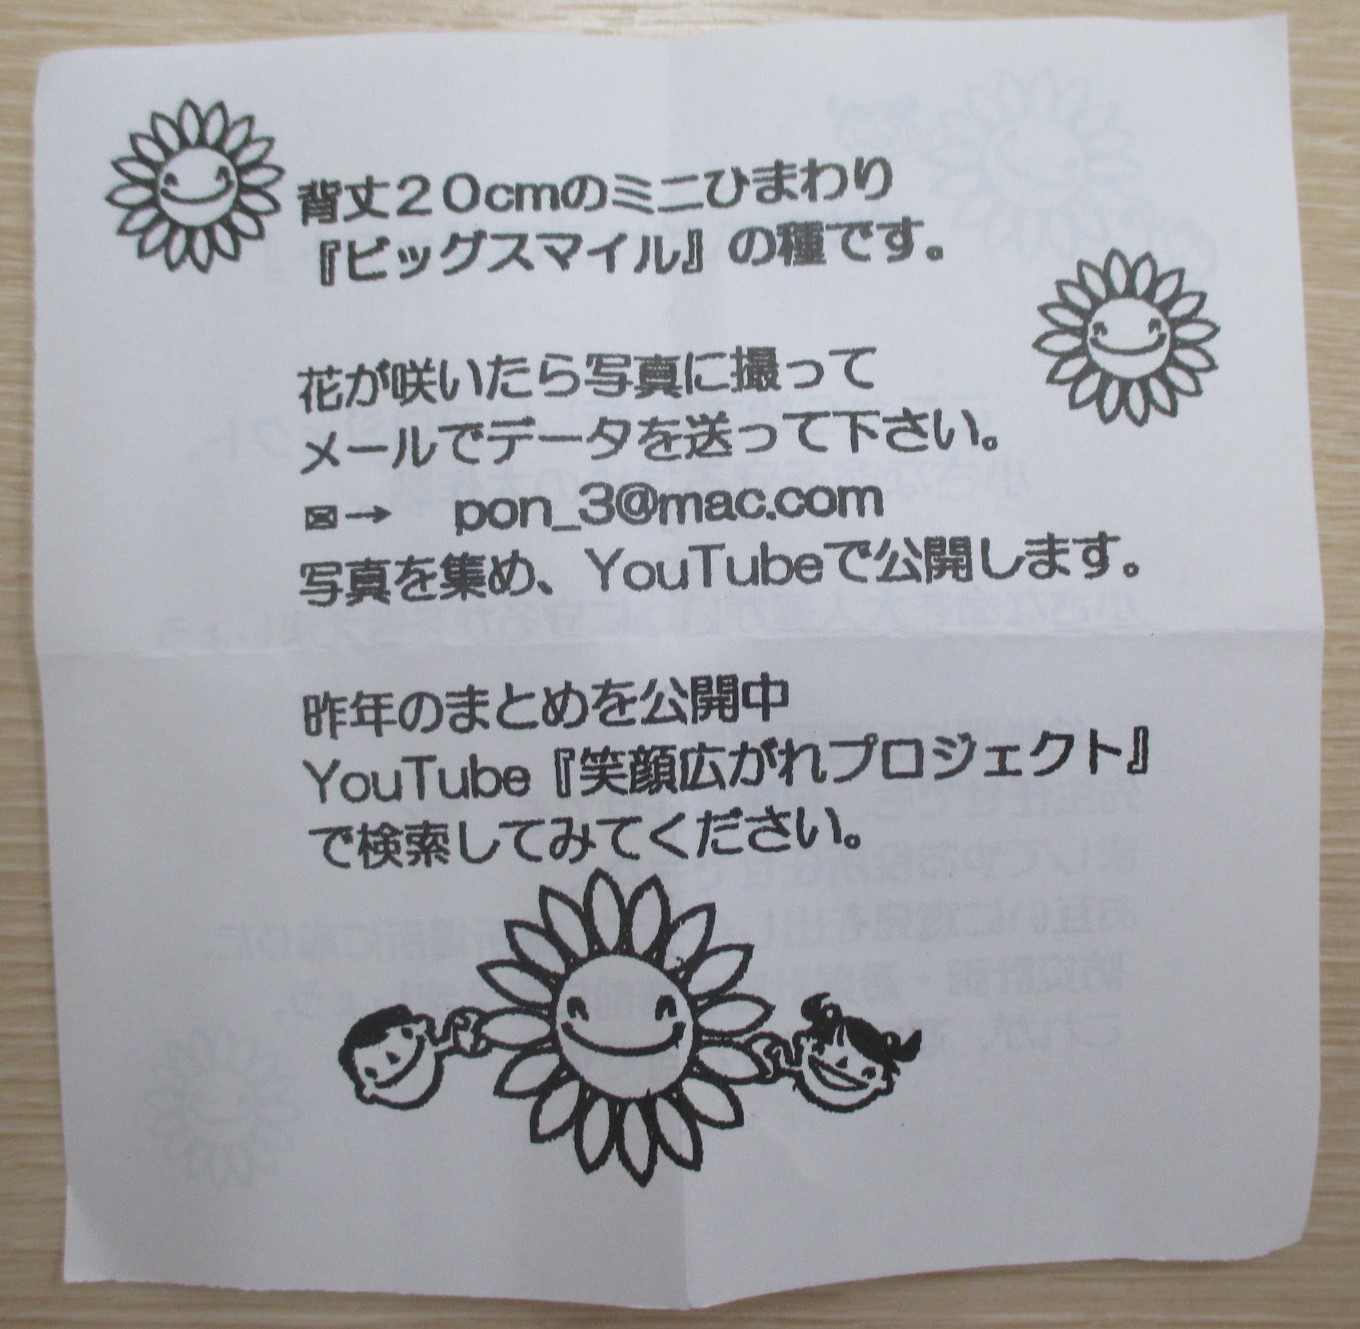 背丈20cmのミニひまわり
『ビッグスマイル』の種です。
花が咲いたら写真に撮って
メールでデータを送って下さい。
✉→ pon_3@mac.com
写真を集め、YouTubeで公開します。
昨年のまとめを公開中
YouTube『笑顔広がれプロジェクト』
で検索してみてください。